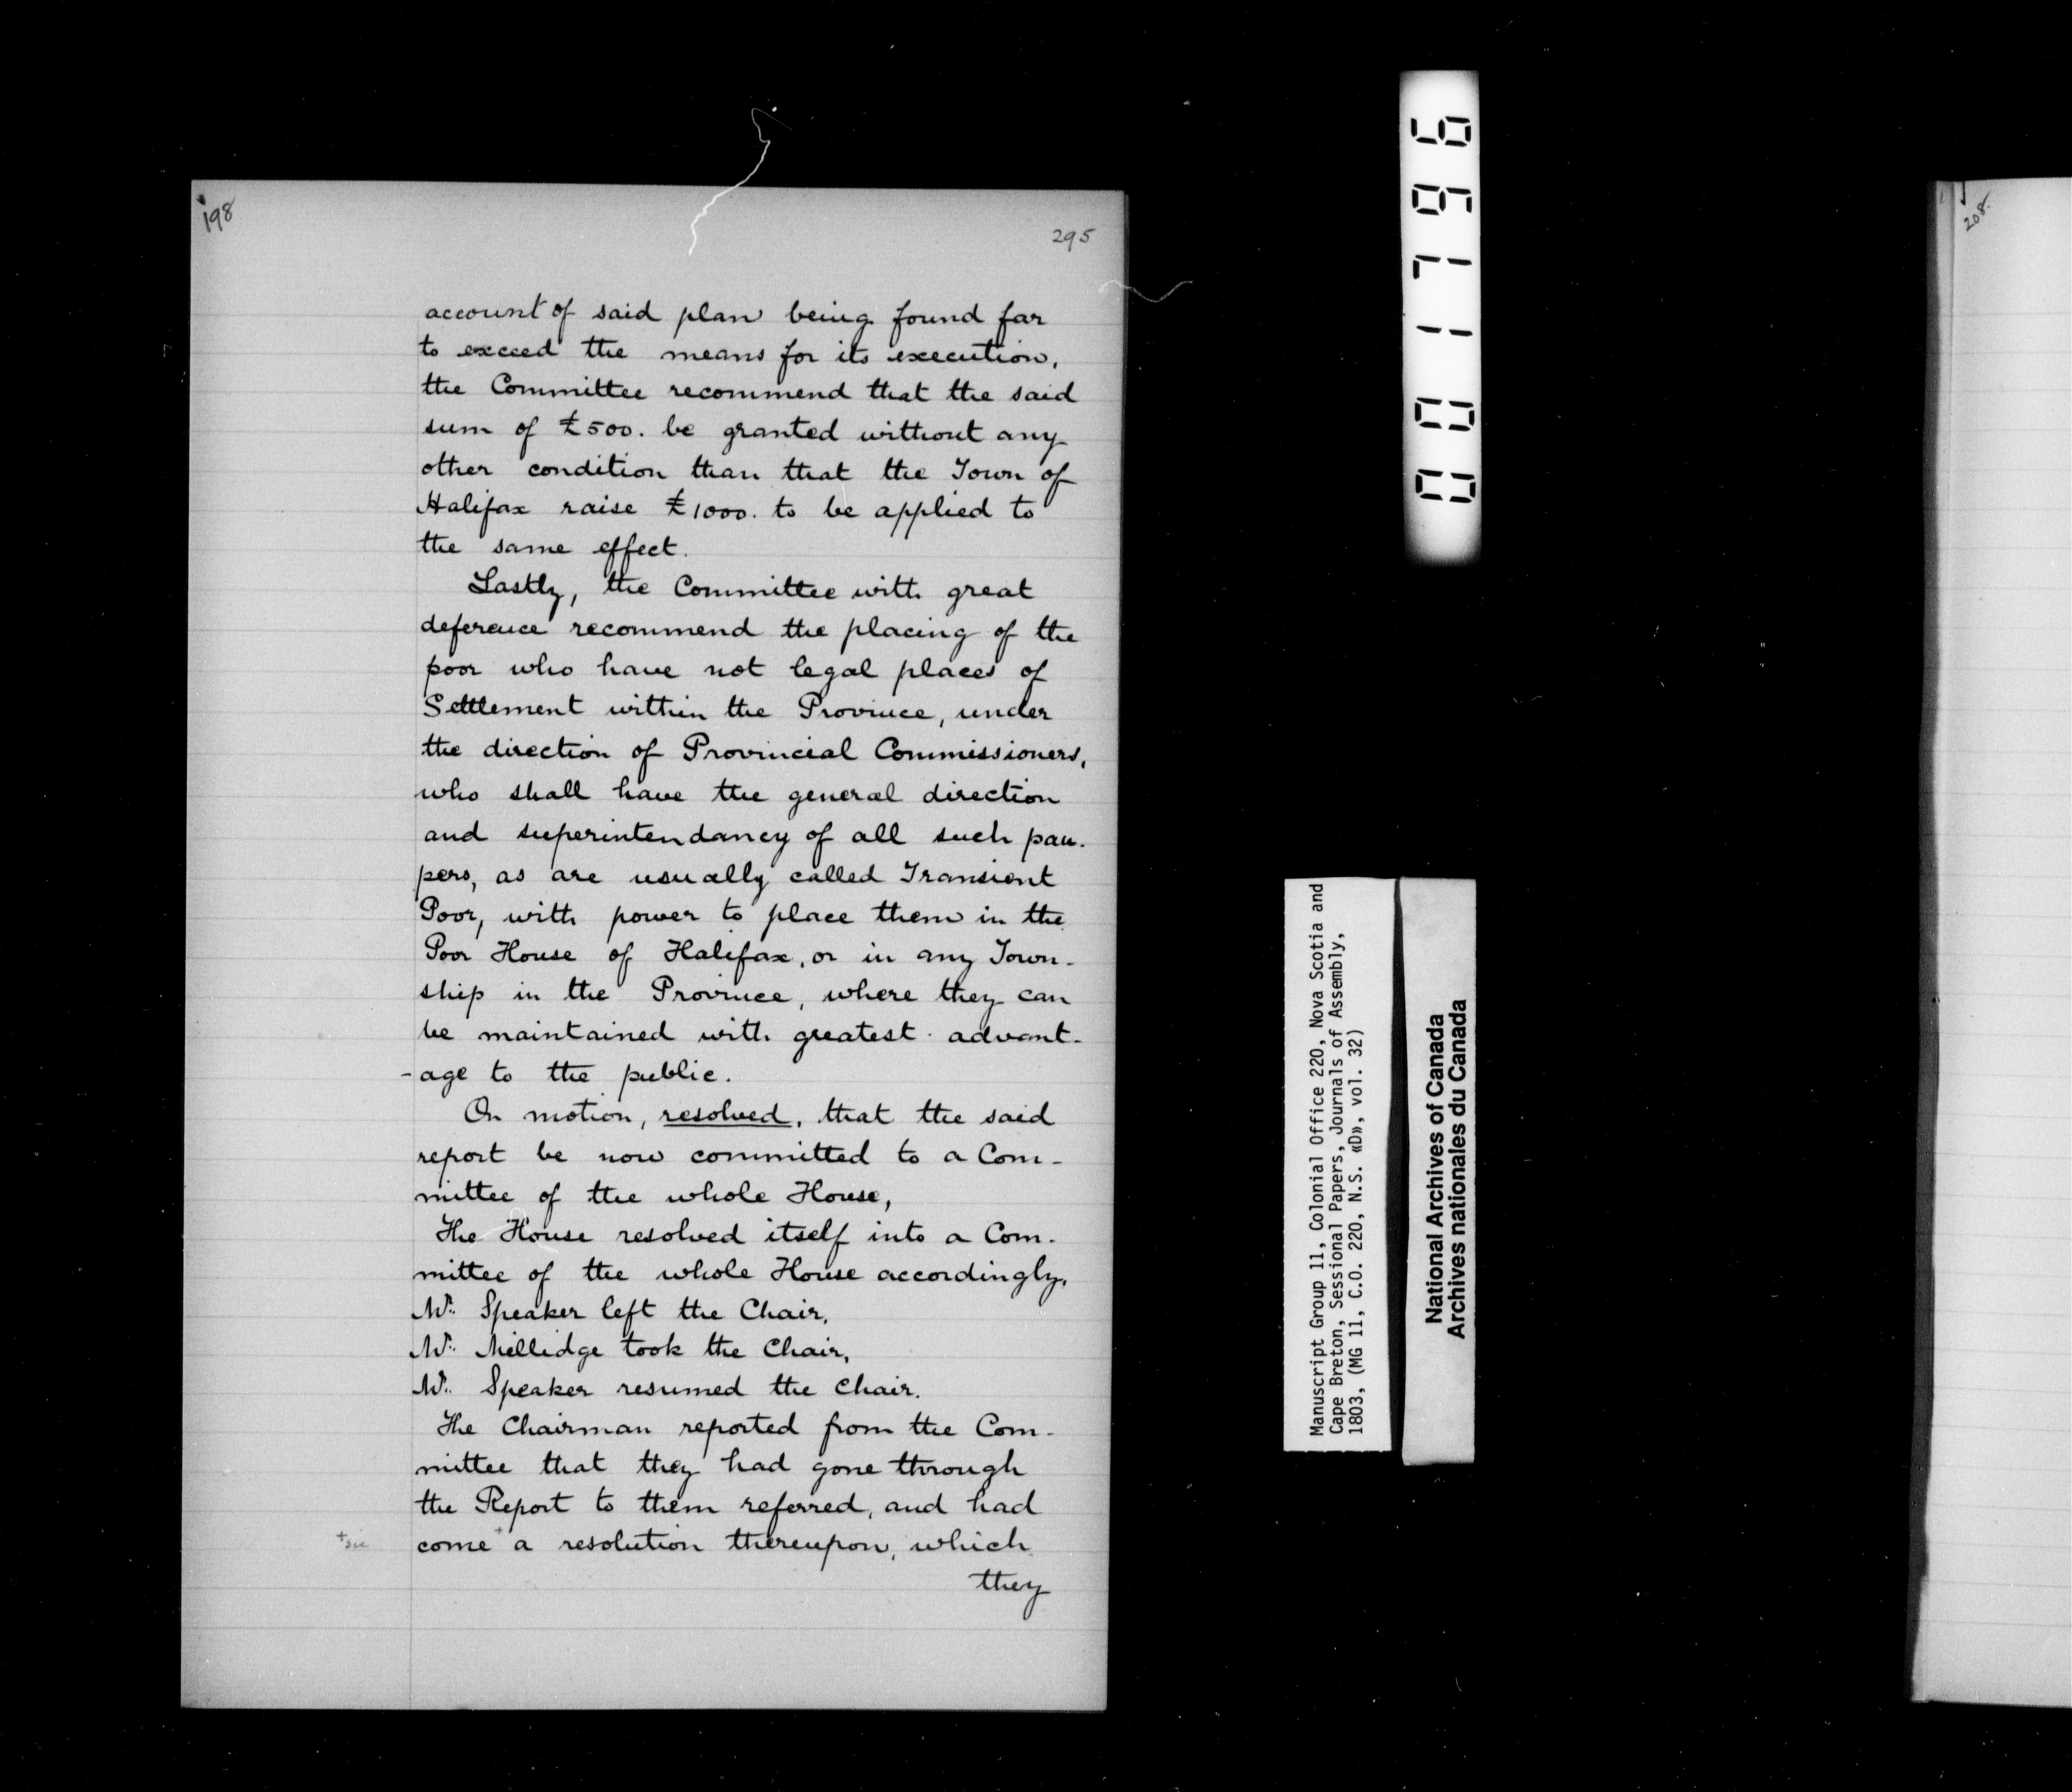 198
295
account of said plan being found far
to exceed the means for its execution,
the Committee recommend that the said
sum of £500. be granted without any
other condition than that the Town of
Halifax raise £1000. to be applied to
the same effect.
Lastly, the Committee with great
deference recommend the placing of the
poor who have not legal places of
Settlement within the Province, under
the direction of Provincial Commissioners,
who shall have the general direction
and superintendancy of all such pau-
pers, as are usually called Transient
Poor, with power to place them in the
Poor House of Halifax, or in any Town-
ship in the Province, where they can
be maintained with greatest advant-
-age to the public.
On motion, resolved, that the said
report be now committed to a Com-
mittee of the whole House,
The House resolved itself into a Com-
mittee of the whole House accordingly,
Mr. Speaker left the Chair,
Mr. Millidge took the Chair,
Mr. Speaker resumed the Chair.
The Chairman reported from the Com-
mittee that they had gone through
the Report to them referred, and had
+sic
come + a resolution thereupon, which
they
001796
Manuscript Group 11, Colonial Office 220, Nova Scotia and
Cape Breton, Sessional Papers, Journals of Assembly,
1803, (MG 11, C.O. 220, N.S. «D», vol. 32)
National Archives of Canada
Archives nationales du Canada
208.